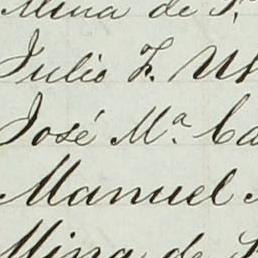 Mina de
Julio F.
José Mª.
Manuel
Mina de